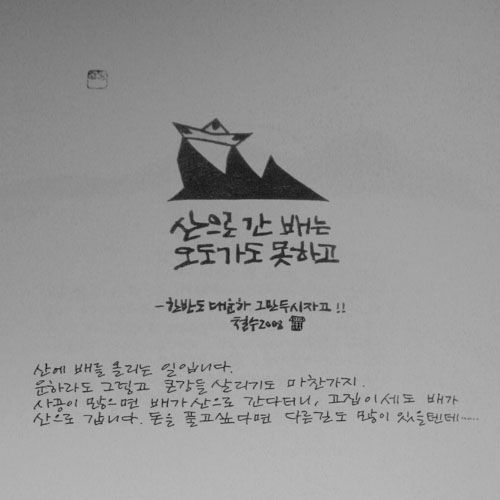 산으로 간 배는
오도가도 못하고
-한반도 대운하 그만두시자고!!
철수2008
산에 배를 올리는 일입니다.
운하라도 그렇고 큰강들 살리기도 마찬가지.
사공이 많으면 배가 산으로 간다더니, 고집이 세도 배가
산으로 갑니다. 돈을 풀고싶다면 다른길도 많이 있을텐데......